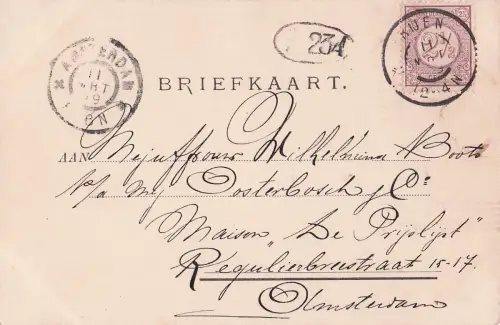 AMSTERDAM
11
MRT
9
6N
234
2-4N
BRIEFKAART.
AAN Mejuffrouw Wilhelmina Boots
p/a mej Oosterbosch & Co:
Maison „De Prijslijst"
Regulierbreestraat 15-17.
Amsterdam